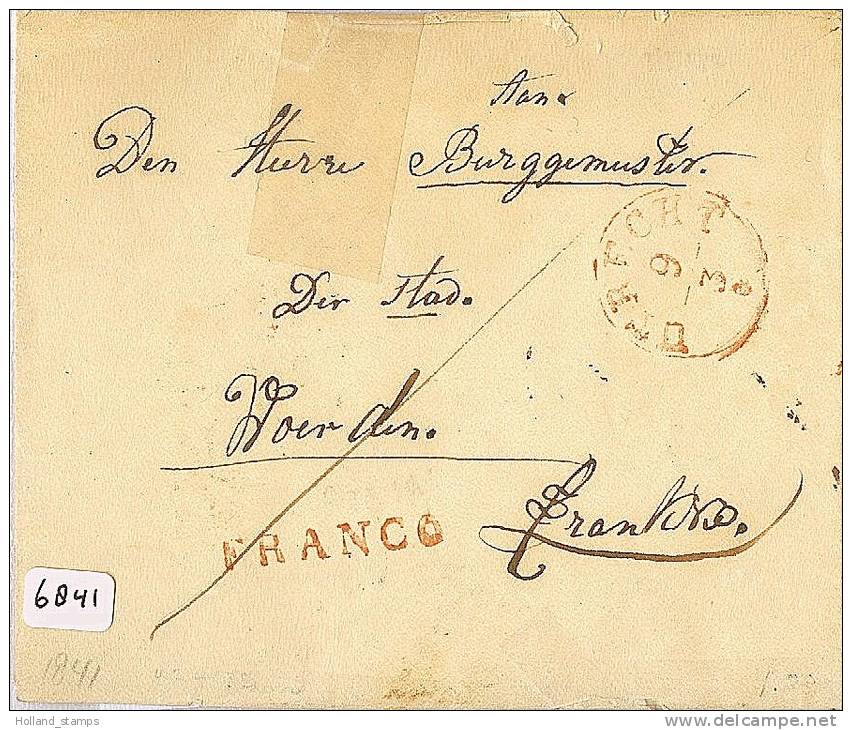 Aan
Den Heere Burggemester.
Der Stad.
Woerden.
FRANCO
Frankoo.
UTRECHT
9
3
6841
1841
Holland_stamps
www.delcampe.net